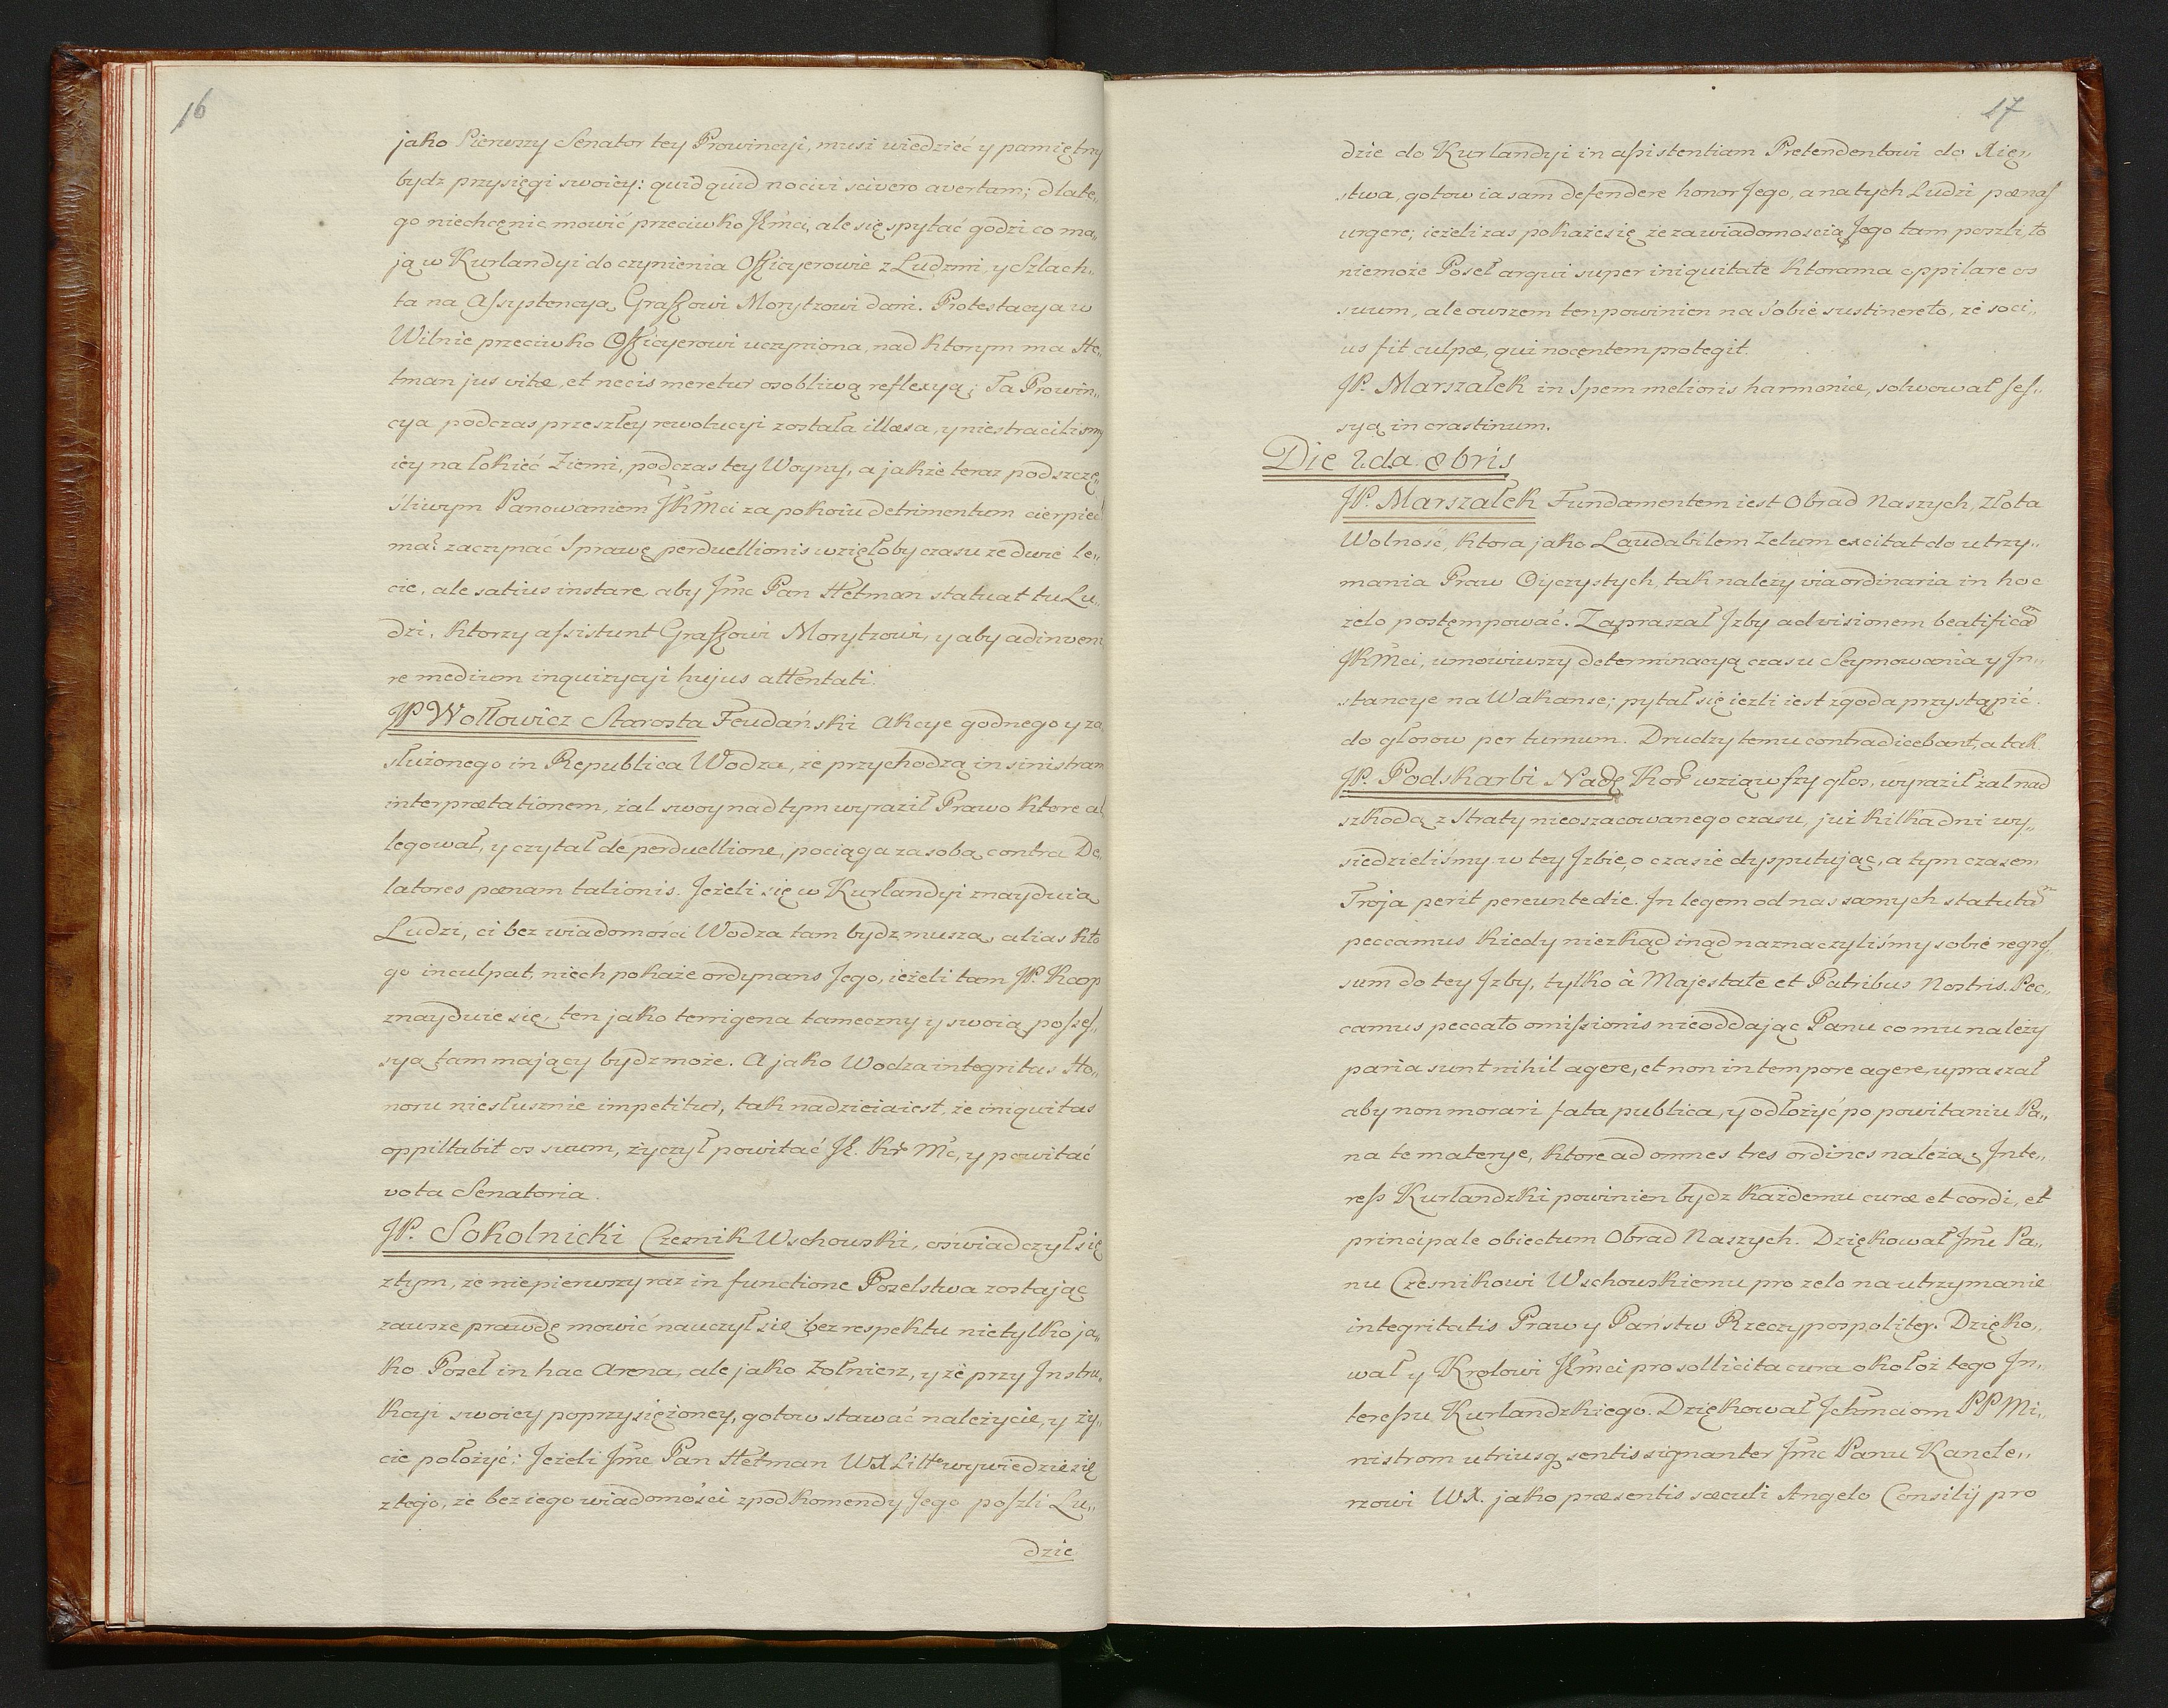 16
jako Pierwszy Senator tey Prowincyi, musi wiedzieć y pamiętny
bydz przysięgi swoiey: quid quid nocivi scivero avertam; dlate„
go niechcęnic mowić przeciwko JKmci, ale się spytać godzi co ma„
ją w Kurlandyi do czynienia Officyerowie z Ludzmi, y Szlach„
ta na Assystencyą Graffowi Morytzowi dani. Protestacya w
Wilnie przeciwko Officyerowi uczyniona, nad ktorym ma He„
tman jus vitæ, et necis meretur osobliwą reflexyą; Ta Prowin„
cya podczas przeszłey rewolucyi została illæsa, y niestracilismy
iey na łokieć Ziemi, podczas tey Woyny, a jakże teraz podszczę„
śliwym Panowaniem JKMci za pokoiu detrimentum cierpieć
ma? zaczynać Sprawę perduellionis wzięłoby czasu ze dwie le„
cie, ale satius instare aby Jmc Pan Hetman statuat tu Lu„
dzi, ktorzy assistunt Graffowi Morytzowi, y aby adinveni
re medium inquizycyi hujus attentati.
JP Wołłowicz Starosta Feudański Akcye godnego y za
służonego in Republica Wodza, że przychodzą in sinistram
interprætationem, żal swoy nad tym wyraził Prawo ktore al
legował, y czytał de perduellione, pociąga za sobą contra De„
latores pænam talionis. Jeżeli się w Kurlandyi znayduią
Ludzi, ci bez wiadomosci Wodza tam bydz muszą, alias kto
go inculpat, niech pokaże ordynans Jego, ieżeli tam JP. Koop
znayduie się, ten jako terrigena tameczny y swoią posses„
syą tam mający bydz może. A jako Wodza integritas Ho„
noru niesłusznie impetitur, tak nadzieia iest, że iniquitas
oppillabit os suum, życzył powitać JK. Kr Mc, y powitać
vota Senatoria.
JP. Sokolnicki Czesnik Wschowski, oświadczył się
ztym, że niepierwszy raz in functione Poselstwa zostając
zawsze prawdę mowić nauczył się bez respektu nie tylko ja„
ko Poseł in hac Arena, ale jako Zołnierz, y że przy Instru„
kcyi swoiey poprzysiężoney, gotow stawać należycie, y ży„
cie położyć: Jeżeli Jmc Pan Hetman WX Litt wywiedzie się
ztego, że bez iego wiadomości zpod komendy Jego poszli Lu„
dzie
17
dzie do Kurlandyi in assistentiam Pretendentowi do Xię„
stwa, gotow ia sam defendere honor Jego, a na tych Ludzi pænas
urgere; ieżeli zas pokaże się że za wiadomoscią Jego tam poszli, to
niemoże Poseł argui super iniquitate ktora ma oppilare os
suum, ale owszem ten powinien na sobie sustinere to, że soci„
us fit culpæ, qui nocentem protegit.
JP. Marszałek in Spem melioris harmoniæ, solwował ses„
syą in crastinum.
Die 2da 8bris
JP. Marszałek Fundamentem iest Obrad Naszych, Złota
Wolność, ktora jako Laudabilem Zelum excitat do utrzy„
mania Praw Oyczystych, tak należy via ordinaria in hoc
zelo postęmpować. Zapraszał Jzby ad visionem beatificam
JKMci, umowiwszy determinacyą czasu Seymowania y In„
stancye na Wakanse; pytał się iezli iest zgoda przystąpić
do głosow per turnum. Drudzy temu contradicebant, a tak
JP. Podskarbi Nadę Kor wziąwszy głos, wyraził żal nad
szkodą z Straty nieoszacowanego czasu, już kilka dni wy„
siedzieliśmy w tey Jzbie, o czasie dysputując, a tym czasem
Troja perit pereunte die. In legem od nas samych statutam
peccamus kiedy niezkąd inąd naznaczyliśmy sobie regres„
sum do tey Jzby, tylko à Majestate et Patribus Nostris. Pec„
camus peccato omissionis nieoddając Panu co mu należy
paria sunt nihil agere, et non in tempore agere, upraszał
aby non morari fata publica, y odłożyć po powitaniu Pa„
na te materye, ktore ad omnes tres ordines należą, Inte„
ress Kurlandzki powinien bydz każdemu curæ et cordi, et
principale obiectum Obrad Naszych. Dziękował Jmc Pa„
nu Czesnikowi Wschowskiemu pro zelo na utrzymanie
integritatis Praw y Państw Rzeczypospolitey. Dzięko„
wał y Krolowi JKmci pro sollicita cura około tego In„
teressu Kurlandzkiego. Dziękował Jchmciom PP Mi„
nistrom utriusq sentis signanter Jmc Panu Kancle„
rzowi WX. jako præsentis sæculi Angelo Consilij pro